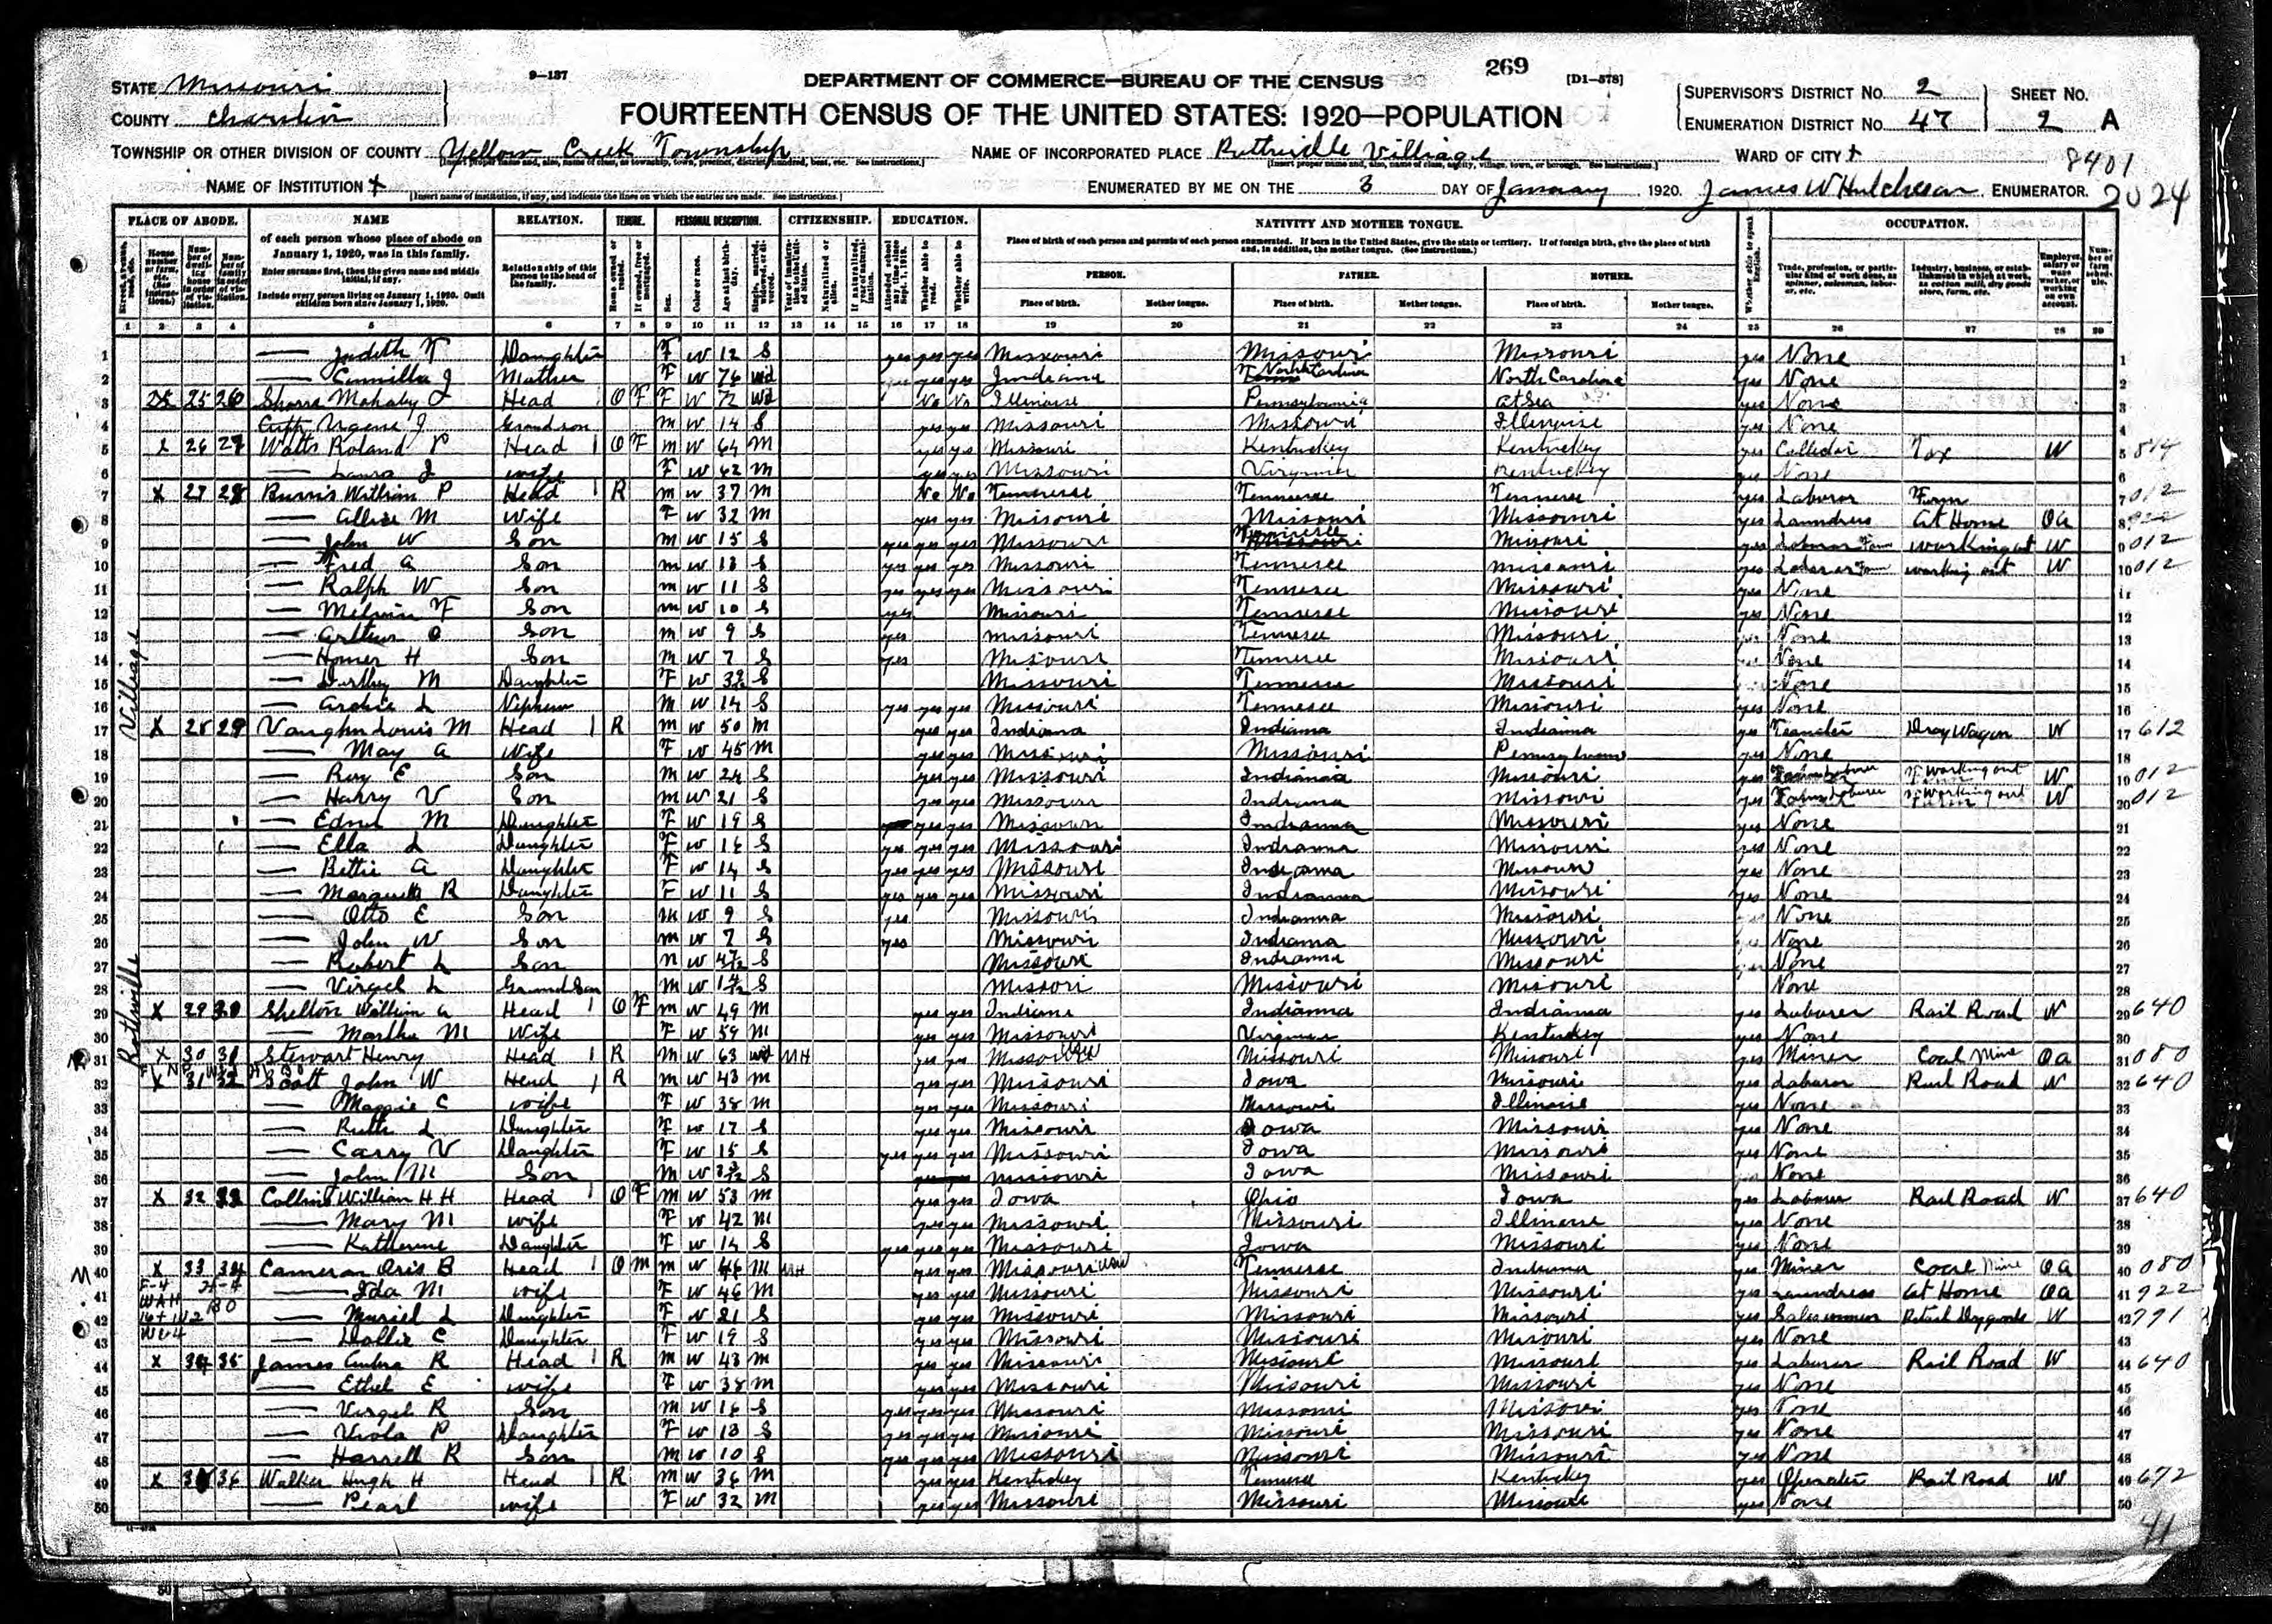 9—137
DEPARTMENT OF COMMERCE—BUREAU OF THE CENSUS
269
[D1—578]
STATE Missouri
COUNTY Chariton
FOURTEENTH CENSUS OF THE UNITED STATES: 1920—POPULATION
SUPERVISOR'S DISTRICT No. 2
ENUMERATION DISTRICT No. 47
SHEET No.
2 A
TOWNSHIP OR OTHER DIVISION OF COUNTY Yellow Creek Township
NAME OF INCORPORATED PLACE Rothville Villiage
WARD OF CITY x
8401
NAME OF INSTITUTION x
ENUMERATED BY ME ON THE 3 DAY OF January, 1920. James W Hutcheson ENUMERATOR.
2024
PLACE OF ABODE. NAME RELATION. TENURE. PERSONAL DESCRIPTION. CITIZENSHIP. EDUCATION. NATIVITY AND MOTHER TONGUE. OCCUPATION.
of each person whose place of abode on January 1, 1920, was in this family.
Enter surname first, then the given name and middle initial, if any.
Include every person living on January 1, 1920. Omit children born since January 1, 1920.
Relationship of this person to the head of the family.
Place of birth of each person and parents of each person enumerated. If born in the United States, give the state or territory. If of foreign birth, give the place of birth and, in addition, the mother tongue. (See instructions.)
PERSON. FATHER. MOTHER.
Place of birth. Mother tongue. Place of birth. Mother tongue. Place of birth. Mother tongue.
1 2 3 4 5 6 7 8 9 10 11 12 13 14 15 16 17 18 19 20 21 22 23 24 25 26 27 28 29
1 — Judith F Daughter F W 12 S yes yes yes Missouri Missouri Missouri yes None 1
2 — Cammilla J Mother F W 76 Wd yes yes Indiana North Carolina North Carolina yes None 2
3 25 26 Mahaley J Head O F F W 72 Wd No No Illinoise Pennsylvania At Sea yes None 3
4 J Grandson M W 14 S yes yes Missouri Missouri Illinoise yes None 4
5 X 26 27 Watts Roland P Head O F M W 64 M yes yes Missouri Kentuckey Kentuckey yes Collector Tax W 5 814
6 — Laura J Wife F W 62 M yes yes Missouri Virginia Kentuckey yes None 6
7 X 27 28 Burris William P Head R M W 37 M No No Tennessee Tennessee Tennessee yes Laborer Farm 7 012
8 — Allise M Wife F W 32 M yes yes Missouri Missouri Missouri yes Laundress At Home OA 8
9 — John W Son M W 15 S yes yes yes Missouri Tennessee Missouri yes Laborer Farm Working out W 9 012
10 — Fred A Son M W 13 S yes yes yes Missouri Tennessee Missouri yes Laborer Farm working out W 10 012
11 — Ralph W Son M W 11 S yes yes yes Missouri Tennessee Missouri yes None 11
12 — Melvin F Son M W 10 S yes Missouri Tennessee Missouri yes None 12
13 — Arthur O Son M W 9 S yes Missouri Tennessee Missouri yes None 13
14 — Homer H Son M W 7 S yes Missouri Tennessee Missouri None 14
15 — Durthey M Daughter F W S Missouri Tennessee Missouri None 15
16 — Archie L Nephew M W 14 S yes yes yes Missouri Tennessee Missouri yes None 16
17 X 28 29 Vaughn Louis M Head R M W 50 M yes yes Indiana Indiana Indianna yes Teamster Dray Wagon W 17 612
18 — May A Wife F W 45 M yes yes Missouri Missouri Pennsylvania yes None 18
19 — Roy E Son M W 24 S yes yes Missouri Indianna Missouri yes Working out W 19 012
20 — Harry V Son M W 21 S yes yes Missouri Indiana Missouri yes Working out W 20 012
21 — Edna M Daughter F W 19 S yes yes Missouri Indianna Missouri yes None 21
22 — Ella L Daughter F W 16 S yes yes yes Missouri Indianna Missouri yes None 22
23 — Bettie A Daughter F W 14 S yes yes yes Missouri Indiana Missouri yes None 23
24 — R Daughter F W 11 S yes yes yes Missouri Indianna Missouri yes None 24
25 — Otto E Son M W 9 S yes Missouri Indianna Missouri None 25
26 — John W Son M W 7 S yes Missouri Indiana Missouri None 26
27 — Robert L Son M W S Missouri Indianna Missouri None 27
28 — Virgel L Grand Son M W S Missouri Missouri Missouri None 28
29 X 29 30 Shelton William A Head O F M W 49 M yes yes Indiana Indianna Indianna yes Laborer Rail Road W 29 640
30 — Martha M Wife F W 59 M yes yes Missouri Virginia Kentuckey yes None 30
31 X 30 31 Stewart Henry Head R M W 63 Wd yes yes Missouri Missouri Missouri yes Miner Coal Mine OA 31 080
32 X 31 32 Scott John W Head R M W 43 M yes yes Missouri Iowa Missouri yes Laborer Rail Road W 32 640
33 — Maggie C Wife F W 38 M yes yes Missouri Missouri Illinoise yes None 33
34 — Ruth L Daughter F W 17 S yes yes Missouri Iowa Missouri yes None 34
35 — Carry V Daughter F W 15 S yes yes yes Missouri Iowa Missouri yes None 35
36 — John M Son M W S Missouri Iowa Missouri None 36
37 X 32 33 Collins William H H Head O F M W 53 M yes yes Iowa Ohio Iowa yes Laborer Rail Road W 37 640
38 — Mary M Wife F W 42 M yes yes Missouri Missouri Illinoise yes None 38
39 — Katherine Daughter F W 14 S yes yes yes Missouri Iowa Missouri yes None 39
40 X 33 34 Cameron Oris B Head O M M W 46 M yes yes Missouri Tennesse Indiana yes Miner Coal Mine OA 40 080
41 — Ida M Wife F W 46 M yes yes Missouri Missouri Missouri yes Laundress At Home OA 41 922
42 — Muriel L Daughter F W 21 S yes yes Missouri Missouri Missouri yes Saleswomen Retail Drygoods W 42 791
43 — Dollie C Daughter F W 19 S yes yes Missouri Missouri Missouri yes None 43
44 X 34 35 James R Head R M W 43 M yes yes Missouri Missouri Missouri yes Laborer Rail Road W 44 640
45 — Ethel E Wife F W 38 M yes yes Missouri Missouri Missouri yes None 45
46 — Virgel R Son M W 16 S yes yes yes Missouri Missouri Missouri yes None 46
47 — Viola P Daughter F W 13 S yes yes yes Missouri Missouri Missouri yes None 47
48 — Harrell R Son M W 10 S yes yes yes Missouri Missouri Missouri yes None 48
49 X 35 36 Walker Hugh H Head R M W 36 M yes yes Kentuckey Tennesse Kentuckey yes Operator Rail Road W 49 672
50 — Pearl Wife F W 32 M yes yes Missouri Missouri Missouri yes None 50
Rothville Villiage
41